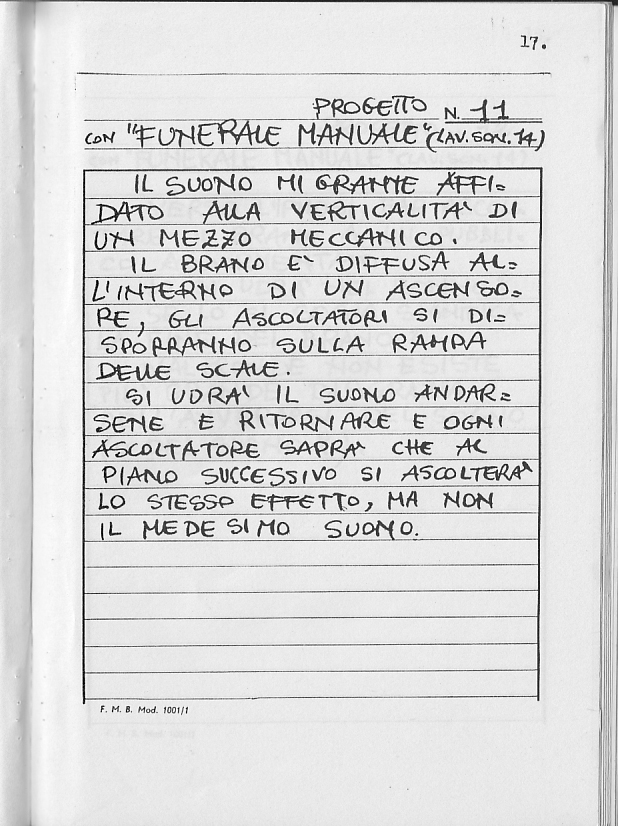 17.
PROGETTO N. 11
CON "FUNERALE MANUALE" (LAV. SON. 14)
IL SUONO MIGRANTE AFFI=
DATO ALLA VERTICALITA' DI
UN MEZZO MECCANICO.
IL BRANO E' DIFFUSA AL=
L'INTERNO DI UN ASCENSO=
RE, GLI ASCOLTATORI SI DI=
SPORRANNO SULLA RAMPA
DELLE SCALE.
SI UDRA' IL SUONO ANDAR=
SENE E RITORNARE E OGNI
ASCOLTATORE SAPRA' CHE AL
PIANO SUCCESSIVO SI ASCOLTERA'
LO STESSO EFFETTO, MA NON
IL MEDESIMO SUONO.
F. M. B. Mod. 1001/1